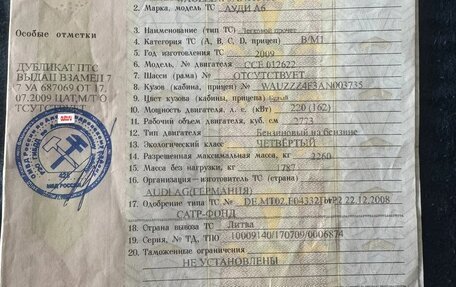 2. Марка, модель ТС АУДИ А6
Особые отметки
3. Наименование (тип ТС) Легковой прочее
4. Категория ТС (А, В, С, D, прицеп) В/М1
5. Год изготовления ТС 2009
6. Модель, № двигателя CCE 012622
7. Шасси (рама) № ОТСУТСТВУЕТ
8. Кузов (кабина, прицеп) № WAUZZZ4F3AN003735
9. Цвет кузова (кабины, прицепа)
10. Мощность двигателя, л. с. (кВт) 220 (162)
11. Рабочий объем двигателя, куб. см 2773
12. Тип двигателя Бензиновый на бензине
13. Экологический класс ЧЕТВЁРТЫЙ
14. Разрешенная максимальная масса, кг 2260
15. Масса без нагрузки, кг 1787
16. Организация—изготовитель ТС (страна)
AUDI AG(ГЕРМАНИЯ)
17. Одобрение типа ТС № DE.MT02.E04332 22.12.2008
САТР-ФОНД
18. Страна вывоза ТС Литва
19. Серия, № ТД, ТПО 10009140/170709/0006874
20. Таможенные ограничения
НЕ УСТАНОВЛЕНЫ
ДУБЛИКАТ ПТС
ВЫДАН ВЗАМЕН 7
7 УА 687069 ОТ 17.
07.2009 ЦАТ,М/Г О
ТСУТСТВУЕТ
МВД РОССИИ